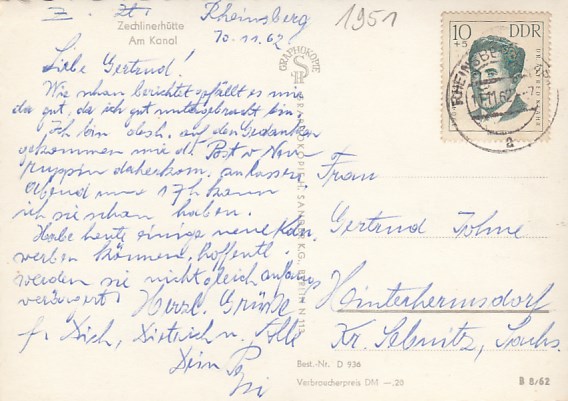 z. Zt. Rheinsberg
10.11.62
1951
Zechlinerhütte
Am Kanal
Liebe Gertrud!
Wie schon berichtet gefällt es mir
da gut, da ich gut untergebracht bin.
Ich bin desh. auf den Gedanken
gekommen mir d. Post v. Neu-
ruppin daherkom. zu lassen.
Abend 17h kann
ich sie schon haben.
Habe heute einige neue Kdn.
werben können. Hoffentl.
werden sie nicht gleich anfangs
verärgert. Herzl. Grüße
f. Dich, Dietrich u.
Dein
GRAPHOKOPIE
GRAPHOKOPIE H. SANDER K.G., BERLIN N 113
10
+5
DDR
RHEINSBERG
a
Frau
Gertrud Johne
Hinterhermsdorf
Kr. Sebnitz, Sachs.
Best.-Nr. D 936
Verbraucherpreis DM —,20
B 8/62